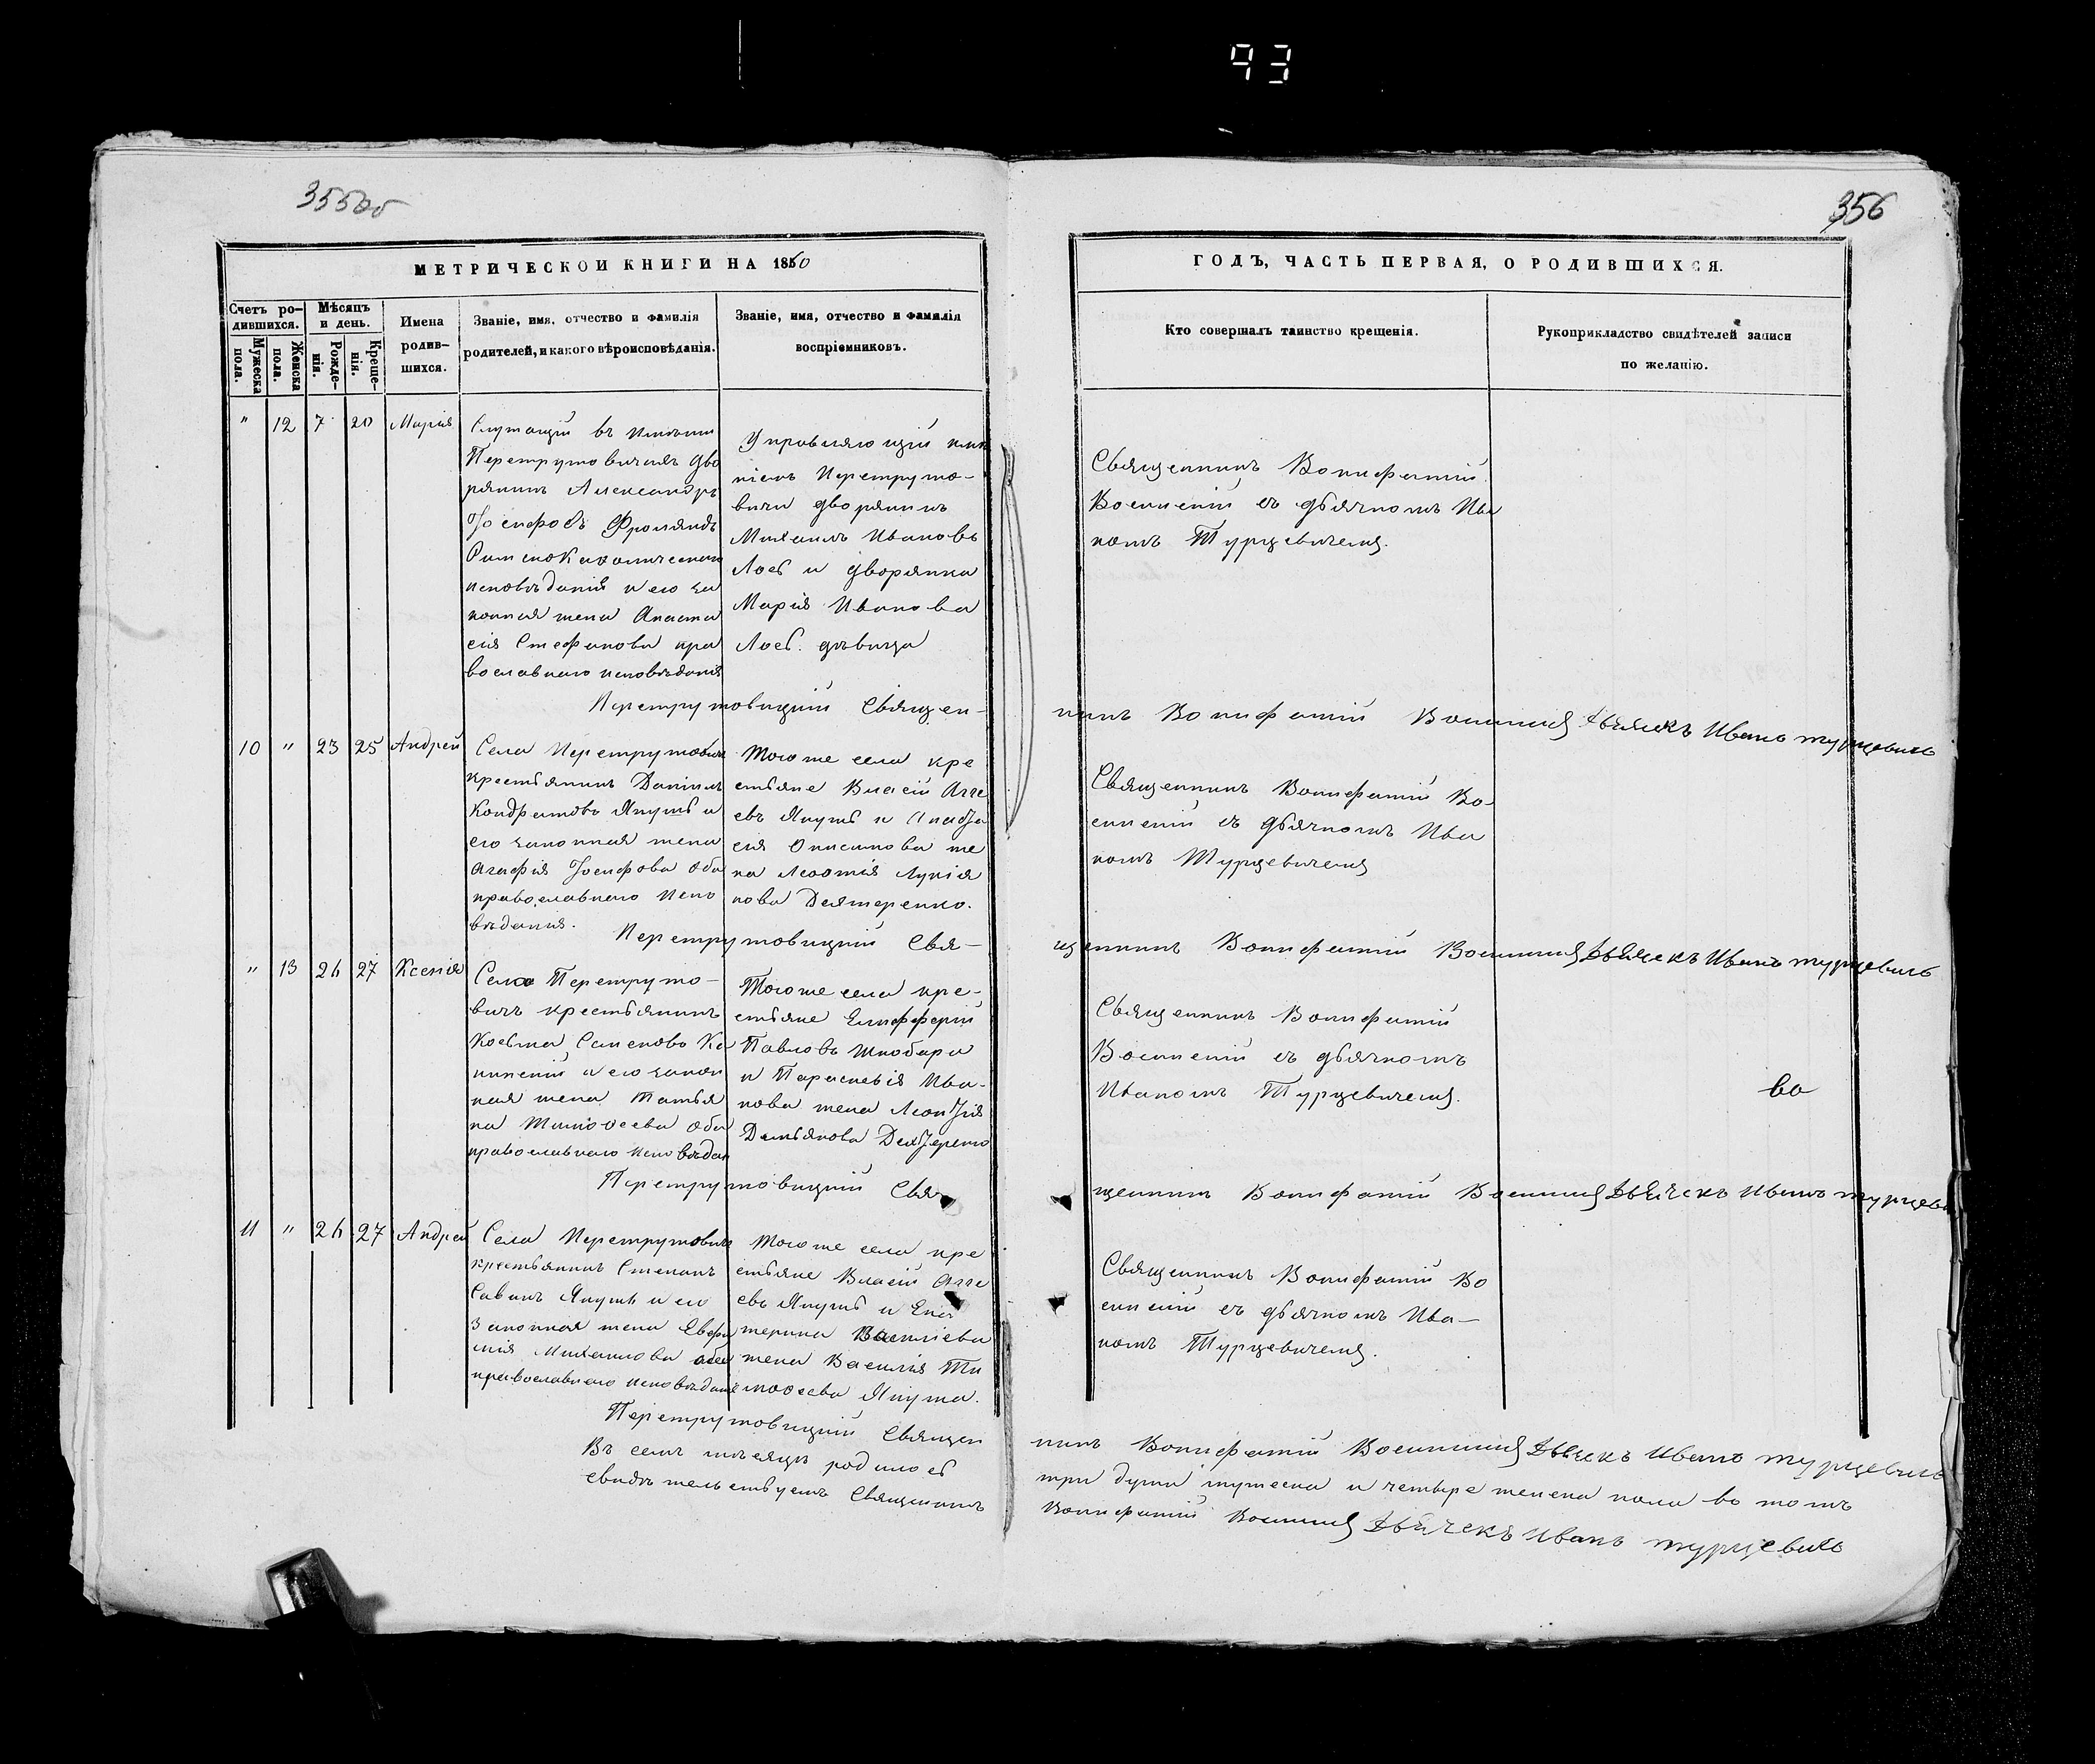 93
355об
356
МЕТРИЧЕСКОЙ КНИГИ НА 1860
ГОДЪ, ЧАСТЬ ПЕРВАЯ, О РОДИВШИХСЯ.
Счетъ ро-
дившихся.
Мужеска пола.
Женска пола.
Мѣсяцъ
и день.
Рожде-
нія.
Креще-
нія.
Имена
родив-
шихся.
Званіе, имя, отчество и фамилія
родителей, и какого вѣроисповѣданія.
Званіе, имя, отчество и фамилія
воспріемниковъ.
Кто совершалъ таинство крещенія.
Рукоприкладство свидѣтелей записи
по желанію.
" 12 7 20 Марія
Служащій въ имѣніи
Перетрутовичахъ дво
рянинъ Александръ
Іосифовъ
Римскокатолическаго
исповѣданія и его за
конная жена Анаста
сія Стефанова пра
вославнаго исповѣданія
Управляющій имѣ
ніемъ Перетруто-
вичи дворянинъ
Михаилъ Ивановъ
Лосъ и дворянка
Марія Иванова
Лосъ. дѣвица
Священникъ Вонифатій
въ дьячкомъ Ива
номъ Турцевичемъ.
Перетрутовицкій Священ-
никъ Вонифатій Дьячекъ Иванъ Турцевичъ
10 " 23 25 Андрей
Села Перетрутовичъ
крестьянинъ Даніилъ
Кондратовъ Якутъ и
его законная жена
Агафія Іосифова оба
православнаго испо
вѣданія.
Тогоже села кре
стьяне Власій Агге
евъ Якутъ и
сія Онисимова же
на Леонтія Лукія
нова Дехтеренко.
Священникъ Вонифатій
съ дьячкомъ Ива
номъ Турцевичемъ
Перетрутовицкій Свя-
щенникъ Вонифатій Дьячекъ Иванъ Турцевичъ
" 13 26 27 Ксенія
Села Перетруто-
вичъ крестьянинъ
Косьма Семеновъ Ка
и его закон
ная жена Татья
на Тимоѳеева оба
православнаго исповѣдан
Тогоже села кре-
стьяне Елифферій
Павловъ Шкобара
и Параскевія Ива-
нова жена Леонтія
Демьянова Дехтеренко
Священникъ Вонифатій
съ дьячкомъ
Иваномъ Турцевичемъ.
во
Перетрутовицкій Свя
щенникъ Вонифатій Дьячекъ Иванъ Турцеви
11 " 26 27 Андрей
Села Перетрутовичъ
крестьянинъ Степанъ
Савинъ Якутъ и его
законная жена Евфи
мія Михаилова оба
православнаго исповѣданія
Тогоже села кре
стьяне Власій Агге
евъ Якутъ и Ека
терина Василіева
жена Василія Ти
моѳеева Якута.
Священникъ Вонифатій
съ дьячкомъ Ива-
номъ Турцевичемъ.
Перетрутовицкій Священ
никъ Вонифатій Дьячекъ Иванъ Турцевичъ
Въ семъ мѣсяцѣ родилось
три души мужеска и четыре женска пола во томъ
свидѣтельствуемъ Священникъ
Вонифатій Дьячекъ Иванъ Турцевичъ